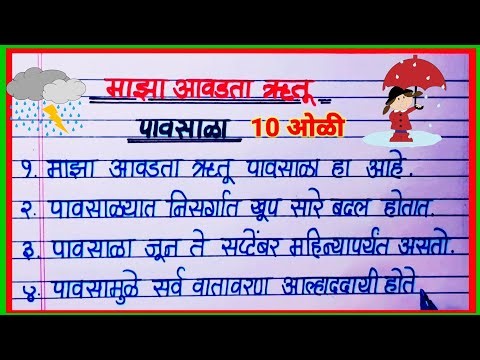 माझा आवडता ऋतू
पावसाळा 10 ओळी
१. माझा आवडता ऋतू पावसाळा हा आहे.
२. पावसाळ्यात निसर्गात खूप सारे बदल होतात.
३. पावसाळा जून ते सप्टेंबर महिन्यापर्यंत असतो.
४. पावसामुळे सर्व वातावरण आल्हाददायी होते